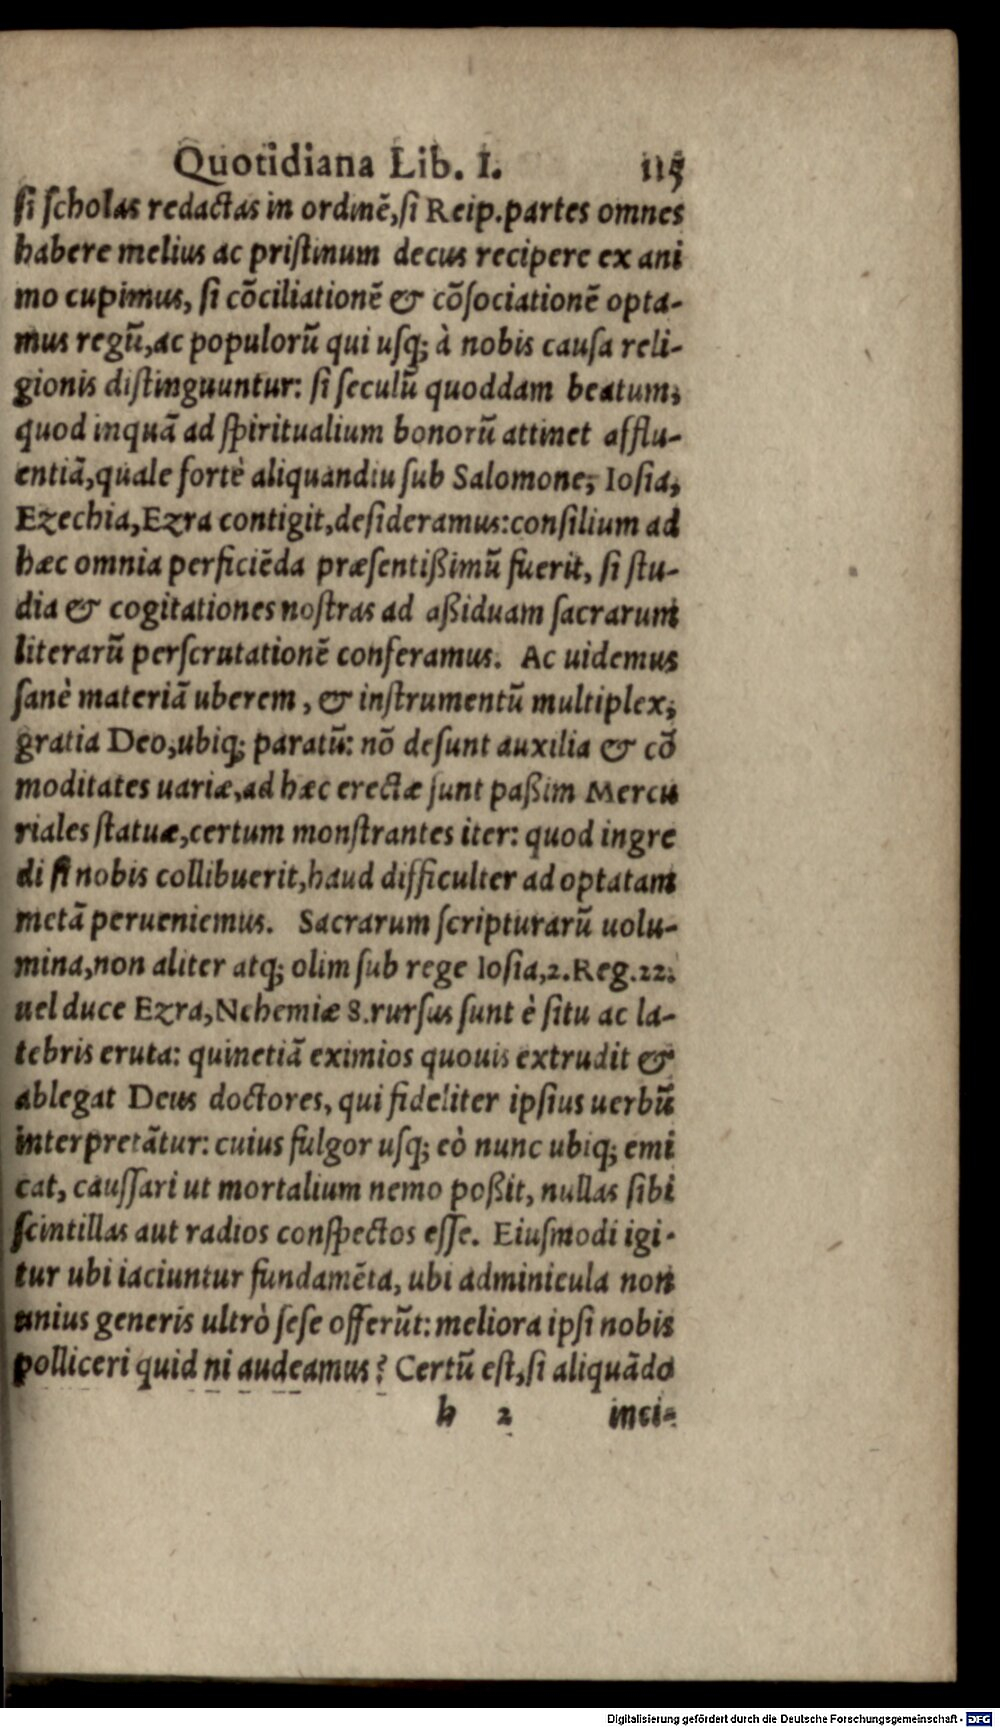 Quotidiana Lib. I. 115
si scholas redactas in ordinē, si Reip. partes omnes
habere melius ac pristinum decus recipere ex ani
mo cupimus, si cōciliationē & cōsociationē opta-
mus regū, ac populorū qui usq; à nobis causa reli-
gionis distinguuntur: si seculū quoddam beatum,
quod inquā ad spiritualium bonorū attinet afflu-
entiā, quale fortè aliquandiu sub Salomone, Iosia,
Ezechia, Ezra contigit, desideramus: consilium ad
hæc omnia perficiēda præsentißimū fuerit, si stu-
dia & cogitationes nostras ad aßiduam sacrarum
literarū perscrutationē conferamus. Ac uidemus
sanè materiā uberem, & instrumentū multiplex,
gratia Deo, ubiq; paratū: nō desunt auxilia & cō
moditates uariæ, ad hæc erectæ sunt paßim Mercu
riales statuæ, certum monstrantes iter: quod ingre
di si nobis collibuerit, haud difficulter ad optatam
metā perueniemus. Sacrarum scripturarū uolu-
mina, non aliter atq; olim sub rege Iosia, 2. Reg. 22.
uel duce Ezra, Nehemiæ 8. rursus sunt è situ ac la-
tebris eruta: quinetiā eximios quouis extrudit &
ablegat Deus doctores, qui fideliter ipsius uerbū
interpretātur: cuius fulgor usq; eò nunc ubiq; emi
cat, caussari ut mortalium nemo poßit, nullas sibi
scintillas aut radios conspectos esse. Eiusmodi igi-
tur ubi iaciuntur fundamēta, ubi adminicula non
unius generis ultrò sese offerūt: meliora ipsi nobis
polliceri quid ni audeamus? Certū est, si aliquādo
h 2 inci-
Digitalisierung gefördert durch die Deutsche Forschungsgemeinschaft - DFG